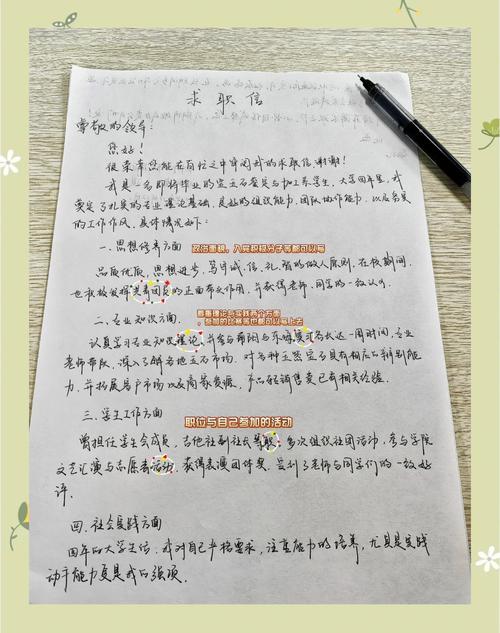 求职信
尊敬的领导:
您好!
很荣幸您能在百忙之中审阅我的求职信,谢谢!
我是一名即将毕业的宝玉石鉴定与加工系学生,大学四年里,我
奠定了扎实的专业理论基础,良好的组织能力,团队协作能力,以及务实
的工作作风,具体情况如下:
一、思想修养方面
政治面貌、入党积极分子等都可以写
品质优良,思想进步,笃守诚、信、礼、智的做人原则,在校期间,
也积极发挥共青团员的正面带头作用,并获得老师、同学的一致认可。
着重理论与实践两个方面
,参加的比赛等也都可以写上去
二、专业知识方面
认真学习专业知识理论,并参与南阳与东海实习为长达一周时间,专业
老师带队,深入了解各地玉石市场,对各种玉器宝石具有相应的辨别能
力,并拓展客户市场以及商家货源,产品经销售卖已有相关经验。
三、学生工作方面
职位与自己参加的活动
曾担任学生会成员,吉他社副社长等职,多次组织社团活动,参与学院
文艺汇演与志愿者活动,获得表演团体奖,受到了老师与同学们的一致好
评。
四、社会实践方面
四年的大学生活,我对自己严格要求,注重能力的培养,尤其是实践
动手能力更是我的强项。